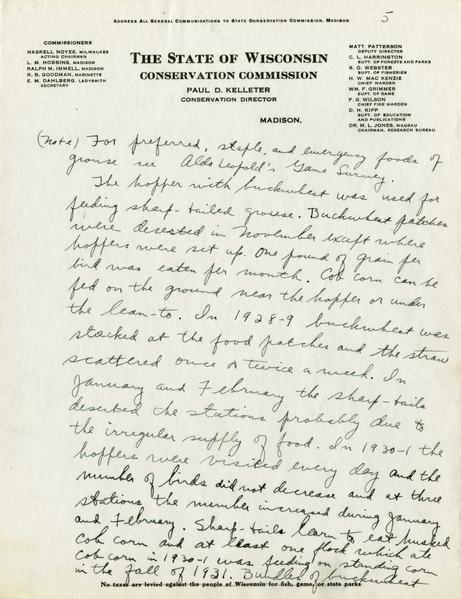 ADDRESS ALL GENERAL COMMUNICATIONS TO STATE CONSERVATION COMMISSION, MADISON
5
COMMISSIONERS
HASKELL NOYES, MILWAUKEE
ACTING CHAIRMAN
L. M. HOBBINS, MADISON
RALPH M. IMMELL, MADISON
R. B. GOODMAN, MARINETTE
E. M. DAHLBERG, LADYSMITH
SECRETARY
THE STATE OF WISCONSIN
CONSERVATION COMMISSION
PAUL D. KELLETER
CONSERVATION DIRECTOR
MADISON,
MATT. PATTERSON
DEPUTY DIRECTOR
C. L. HARRINGTON
SUPT. OF FORESTS AND PARKS
B. O. WEBSTER
SUPT. OF FISHERIES
H. W. MAC KENZIE
CHIEF WARDEN
WM. F. GRIMMER
SUPT. OF GAME
F. G. WILSON
CHIEF FIRE WARDEN
D. H. KIPP
SUPT. OF EDUCATION
AND PUBLICATIONS
DR. M. L. JONES, WAUSAU
CHAIRMAN, RESEARCH BUREAU
(Note) For preferred, staple, and emergency foods of
grouse see Aldo Leopold's Game Survey.
The hopper with buckwheat was used for
feeding sharp-tailed grouse. Buckwheat patches
were deserted in November except where
hoppers were set up. One pound of grain per
bird was eaten per month. Cob corn can be
fed on the ground near the hopper or under
the lean-to. In 1928-9 buckwheat was
stacked at the food patches and the straw
scattered once or twice a week. In
January and February the sharp-tails
deserted the stations probably due to
the irregular supply of food. In 1930-1 the
hoppers were visited every day and the
number of birds did not decrease and at three
stations the number increased during January
and February. Sharp-tails learn to eat husked
cob corn and at least one flock which ate
cob corn in 1930-1 was feeding on standing corn
in the fall of 1931. Bundles of buckwheat
No taxes are levied against the people of Wisconsin for fish, game, or state parks